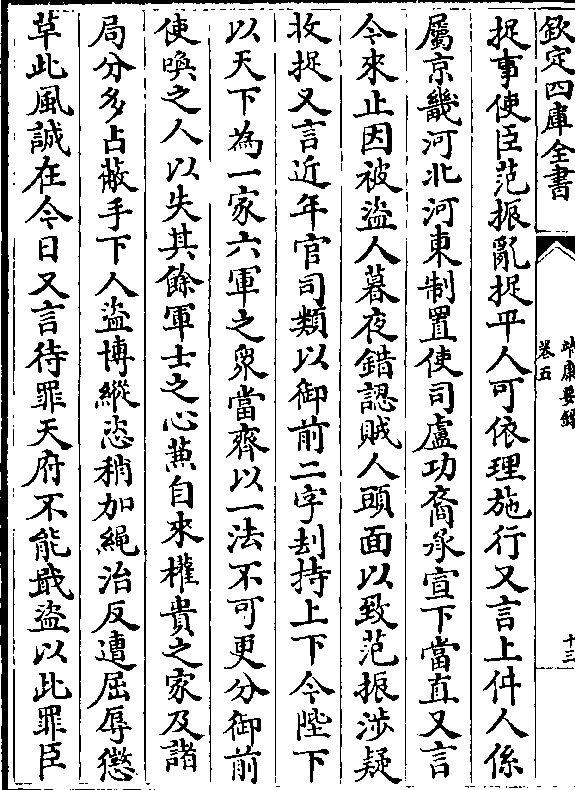 欽定四庫全書
靖康要錄
卷五
十三
捉事使臣范振亂捉平人可依理施行又言上件人係
屬京畿河北河東制置使司盧功裔承宣下當直又言
今來止因被盜人暮夜錯認賊人頭面以致范振涉疑
收捉又言近年官司類以御前二字刼持上下今陛下
以天下為一家六軍之衆當齊以一法不可更分御前
使喚之人以失其餘軍士之心蕪自來權貴之家及諸
局分多占蔽手下人盜博縱恣稍加繩治反遭屈辱懲
草此風誠在今日又言待罪天府不能戢盜以此罪臣